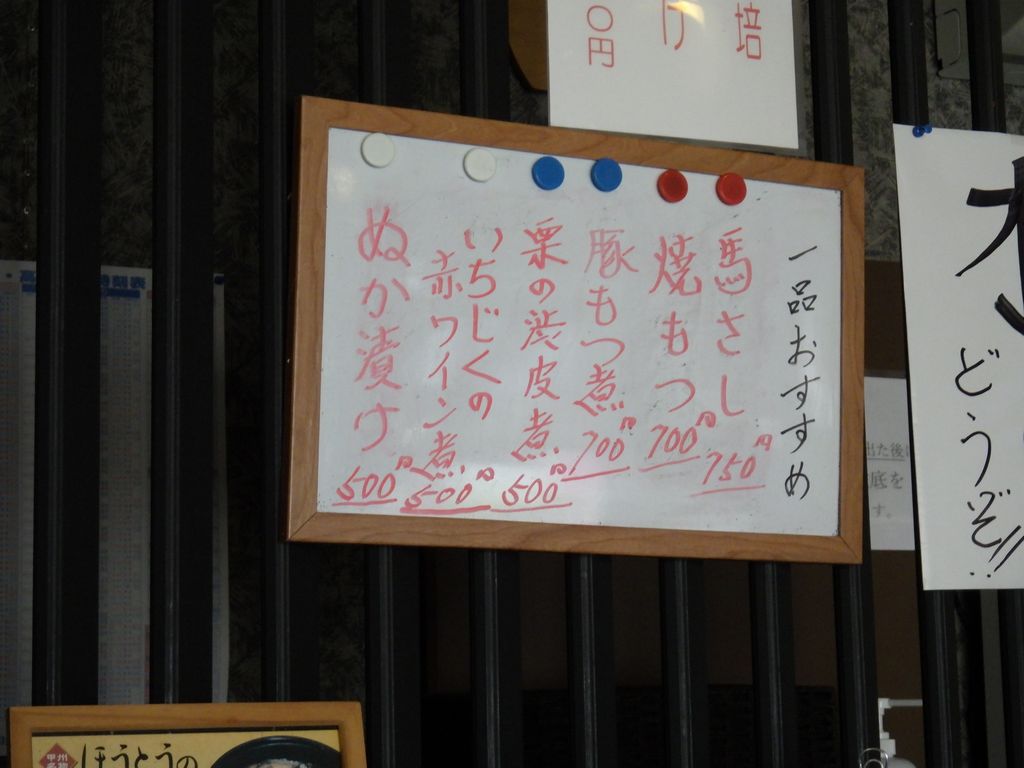 培
け
〇円
一品おすすめ
馬さし 750円
焼もつ 700円
豚もつ煮 700円
栗の渋皮煮 500円
いちじくの
赤ワイン煮 500円
ぬか漬け 500円
どうぞ!!
出た後
底を
す。
甲州
名物
ほうとうの